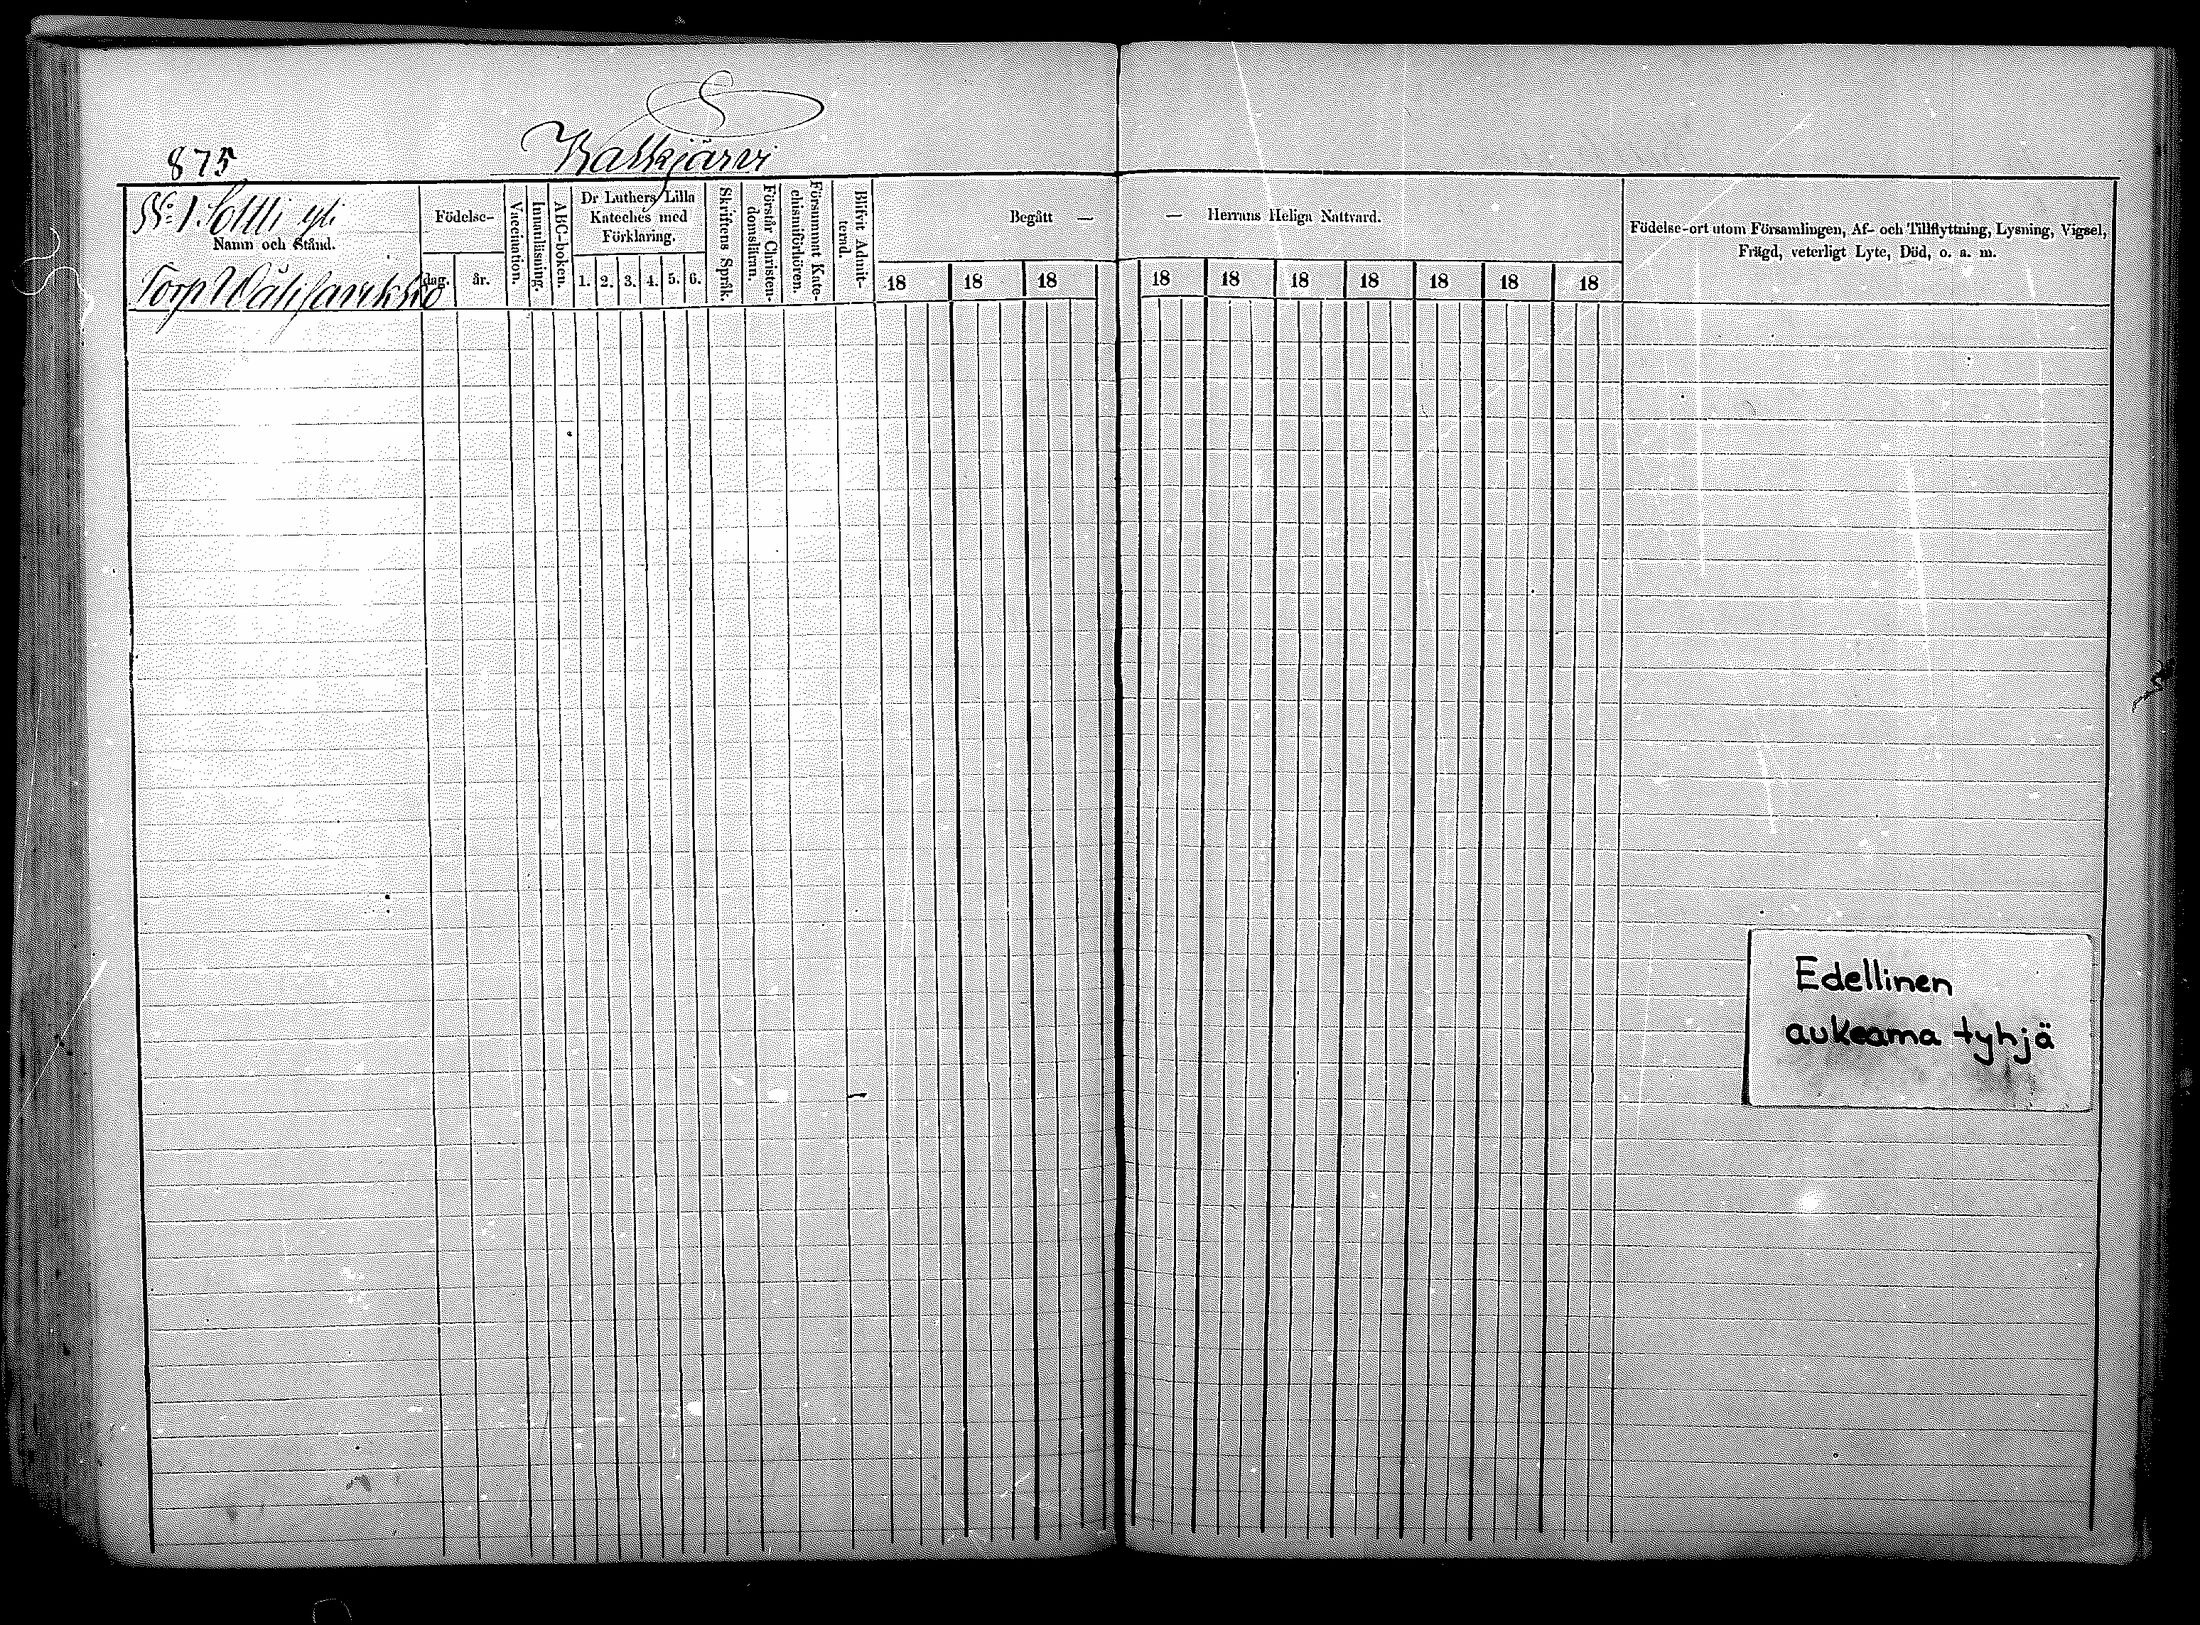 875
Kaskjärvi
No: 1. Sotti yli
Namn och Stånd.
Torp
Födelse-
dag.
år.
Vaccination.
Innanläsning.
ABC-boken.
Dr Luthers Lilla
Kateches med
Förklaring.
1. 2. 3. 4. 5. 6.
Skriftens Språk.
Förstår Christen-
domslämn.
Försummat Kate-
chismiförhören.
Blifvit Admit-
terad.
Begått —
18 18 18
— Herrans Heliga Nattvard.
18 18 18 18 18 18 18
Födelse-ort utom Församlingen, Af- och Tillflyttning, Lysning, Vigsel,
Frägd, veterligt Lyte, Död, o. a. m.
Edellinen
aukeama tyhjä